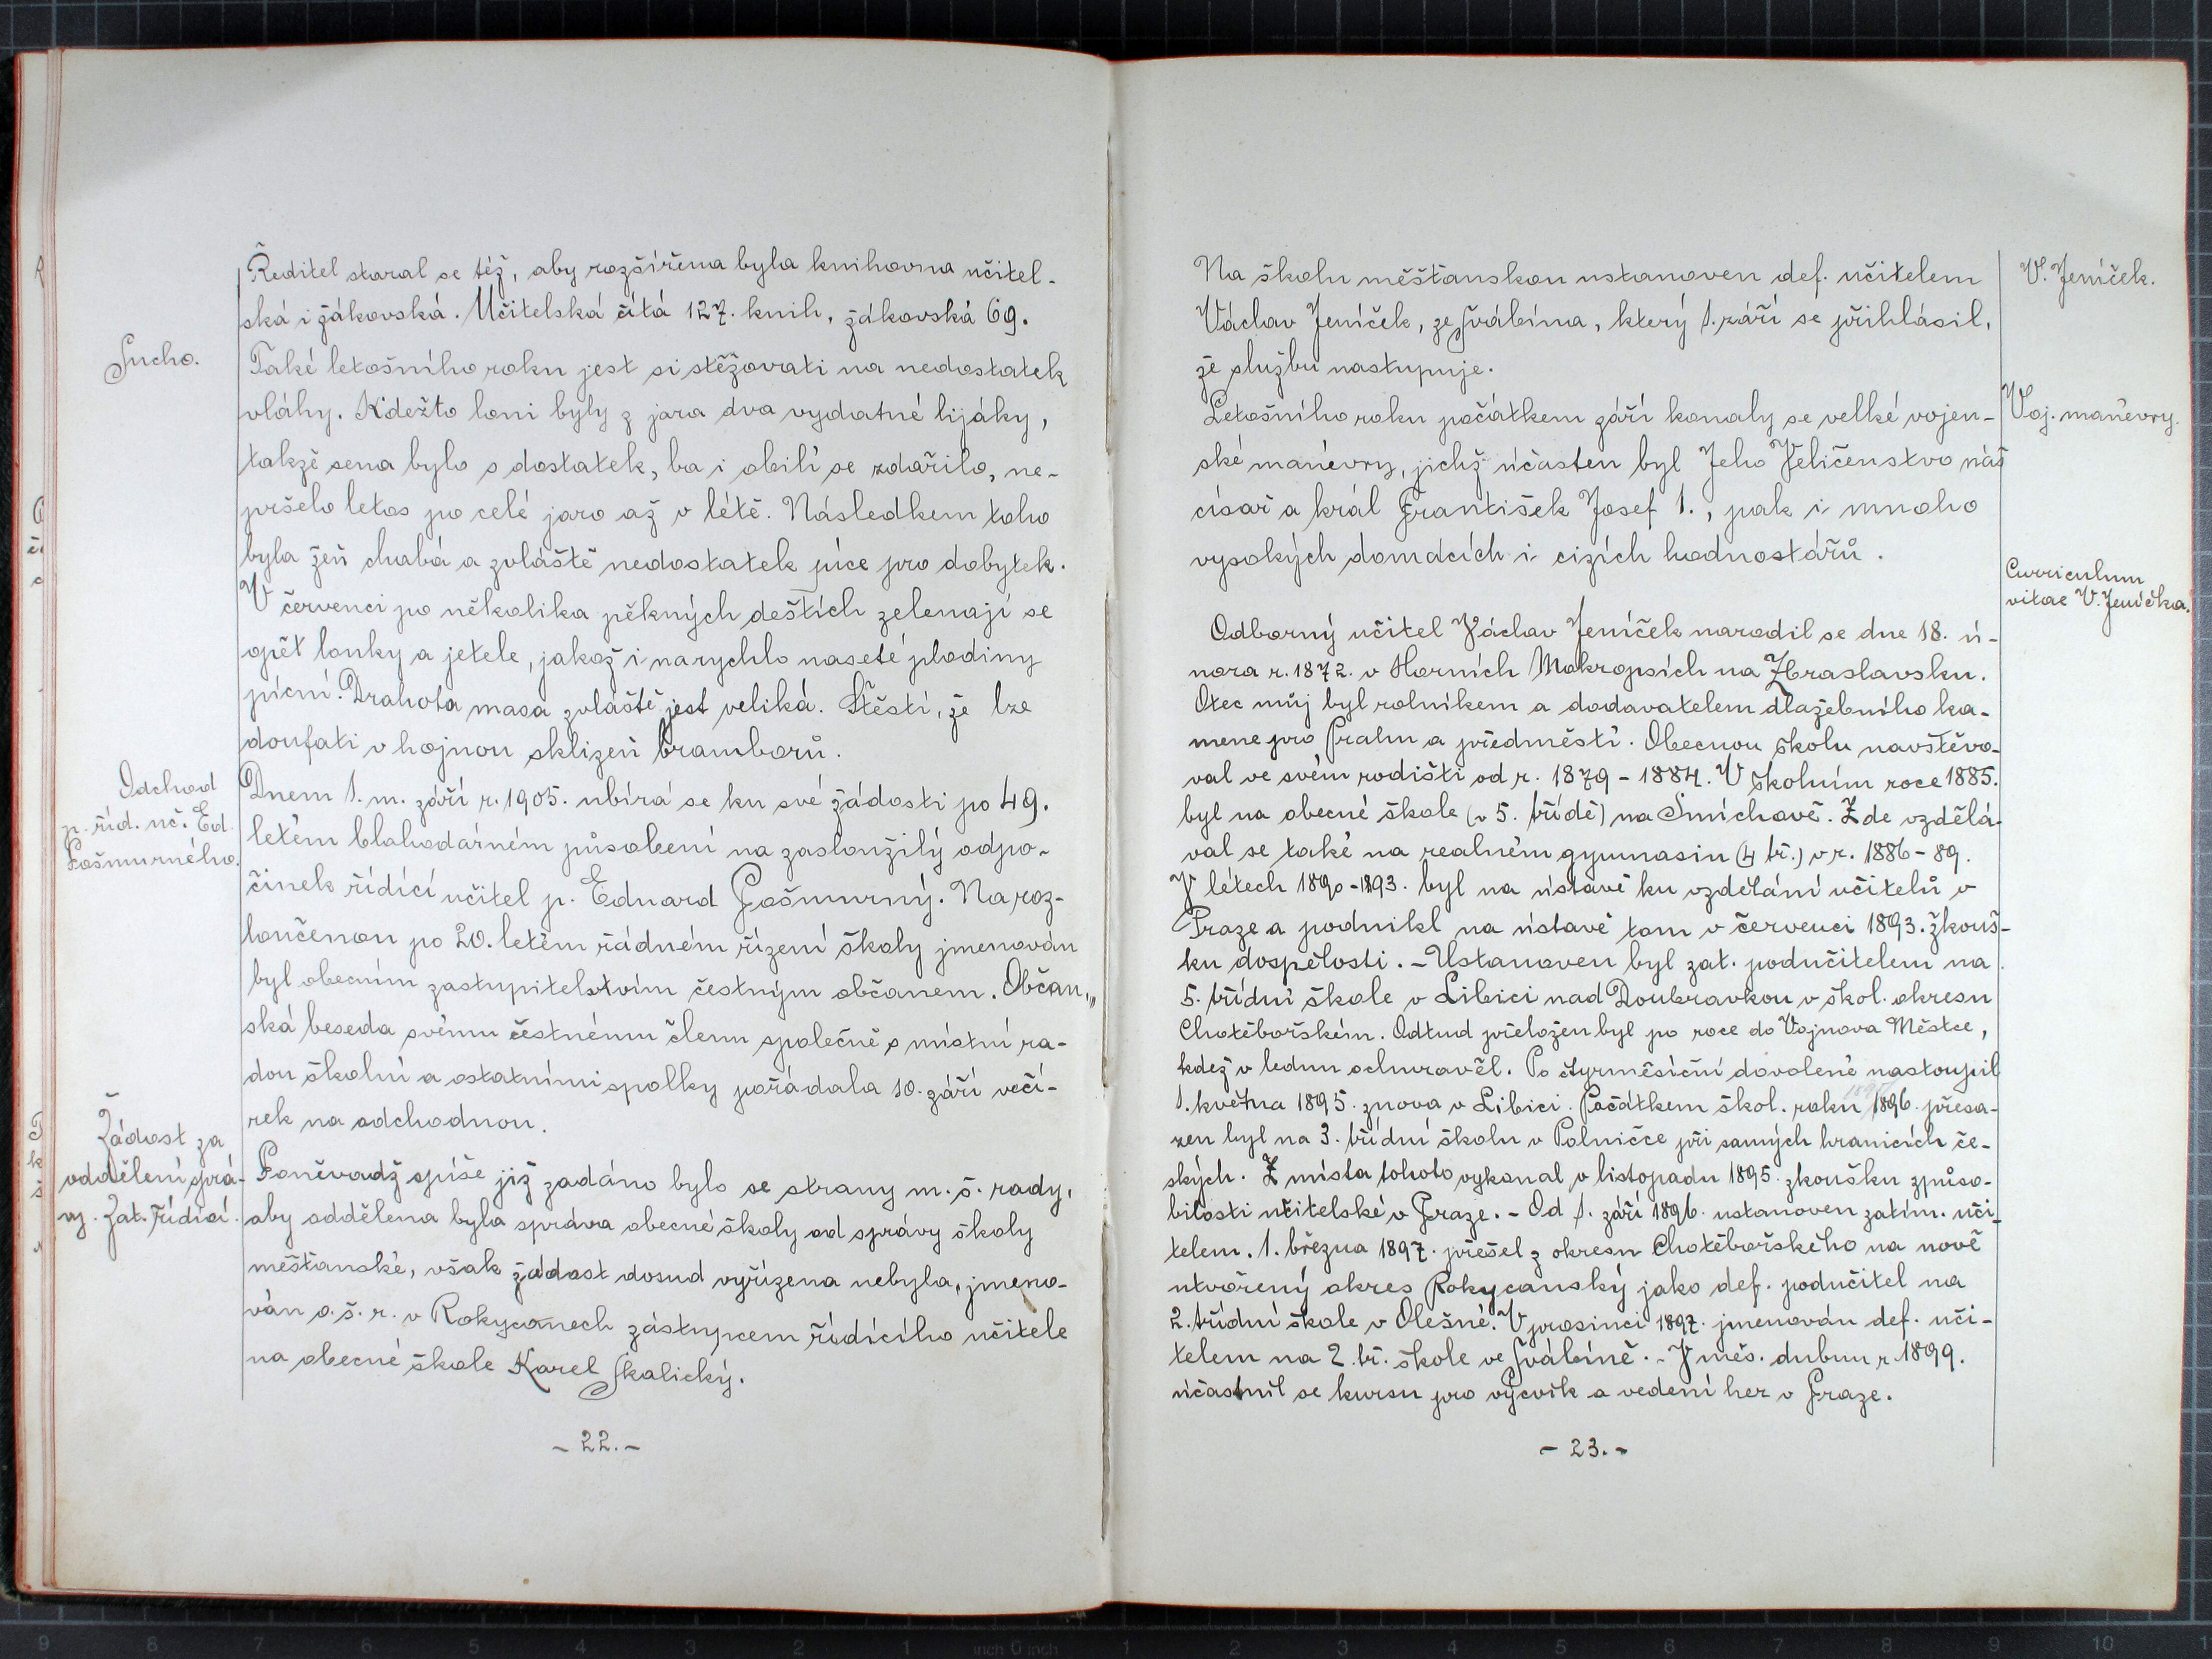 Ředitel staral se též, aby rozšířena byla knihovna učitel-
ská i žákovská. Učitelská čítá 127. knih, žákovská 69.
Sucho.
Také letošního roku jest si stěžovati na nedostatek
vláhy. Kdežto loni byly z jara dva vydatné lijáky,
takže sena bylo s dostatek, ba i obilí se zdařilo, ne-
pršelo letos po celé jaro až v létě. Následkem toho
byla žeň chabá a zvláště nedostatek píce pro dobytek.
V červenci po několika pěkných deštích zelenají se
opět louky a jetele, jakož i narychlo naseté plodiny
pícní. Drahota masa zvláště jest veliká. Štěstí, že lze
doufati v hojnou sklizeň bramborů.
Odchod
p. říd. uč. Ed.
Pošmurného.
Dnem 1. m. září r. 1905. ubírá se ku své žádosti po 49.
letém blahodárném působení na zasloužilý odpo-
činek řídící učitel p. Eduard Pošmurný. Na roz-
loučenou po 20. letém řádném řízení školy jmenován
byl obecním zastupitelstvím čestným občanem. Občan„
ská beseda svému čestnému členu společně s místní ra-
dou školní a ostatními spolky pořádala 10. září večí-
rek na odchodnou.
Žádost za
oddělení sprá-
vy. Zat. řídící.
Poněvadž spíše již zadáno bylo se strany m. š. rady,
aby oddělena byla správa obecné školy od správy školy
měšťanské, však žádost dosud vyřízena nebyla, jmeno-
ván o. š. r. v Rokycanech zástupcem řídícího učitele
na obecné škole Karel Skalický.
- 22. -
Na školu měšťanskou ustanoven def. učitelem
Václav Jeníček, ze Švábína, který 1. září se přihlásil,
že službu nastupuje.
V. Jeníček.
Letošního roku počátkem září konaly se velké vojen-
ské manévry, jichž účasten byl Jeho Veličenstvo náš
císař a král František Josef 1., pak i mnoho
vysokých domácích i cizích hodnostářů.
Voj. manévry.
Curriculum
vitae V. Jeníčka.
Odborný učitel Václav Jeníček narodil se dne 18. ú-
nora r. 1872. v Horních Mokropsích na Zbraslavsku.
Otec můj byl rolníkem a dodavatelem dlažebního ka-
mene pro Prahu a předměstí. Obecnou školu navštěvo-
val ve svém rodišti od r. 1879 - 1884. V školním roce 1885.
byl na obecné škole (v 5. třídě) na Smíchově. Zde vzdělá-
val se také na realném gymnasiu (4 tř.) v r. 1886 - 89.
V létech 1890 - 1893. byl na ústavě ku vzdělání učitelů v
Praze a podnikl na ústavě tom v červenci 1893. zkouš-
ku dospělosti. - Ustanoven byl zat. podučitelem na
5. třídní škole v Libici nad Doubravkou v škol. okresu
Chotěbořském. Odtud přeložen byl po roce do Vojnova Městce,
kdež v lednu ochuravěl. Po čtyrměsíční dovolené nastoupil
1. května 1895. znova v Libici. Počátkem škol. roku 1896. přesa-
zen byl na 3. třídní školu v Polničce při samých hranicích če-
ských. Z místa tohoto vykonal v listopadu 1895. zkoušku způso-
bilosti učitelské v Praze. - Od 1. září 1896. ustanoven zatím. uči-
telem. 1. března 1897. přešel z okresu Chotěbořského na nově
utvořený okres Rokycanský jako def. podučitel na
2. třídní škole v Olešné. V prosinci 1897. jmenován def. uči-
telem na 2. tř. škole ve Švábíně. - V měs. dubnu r. 1899.
účastnil se kursu pro výcvik a vedení her v Praze.
- 23. -